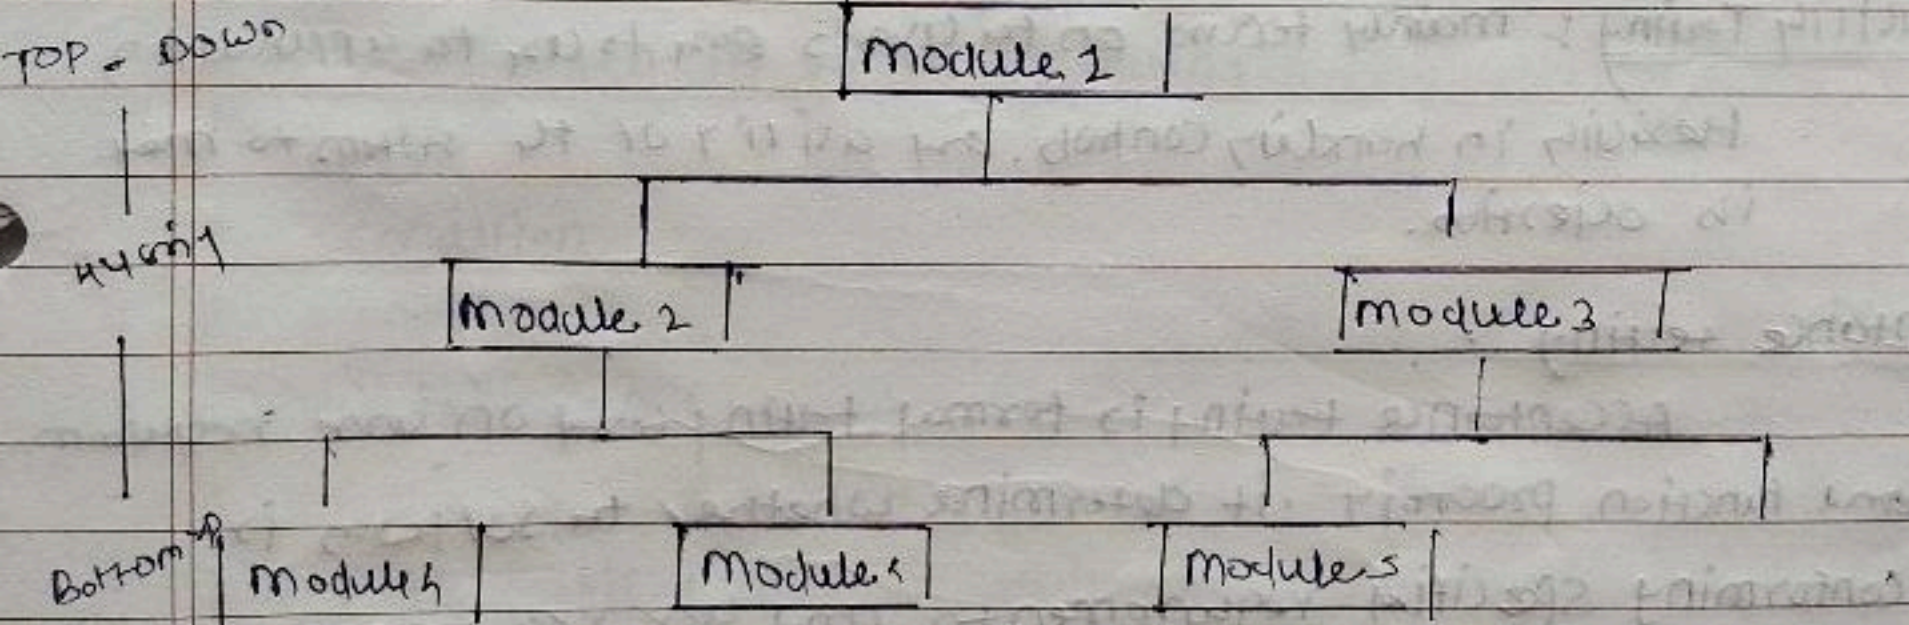 TOP - DOWN
Module 1
Module 2
Module 3
Bottom-up
Module 4
Module
Module 5